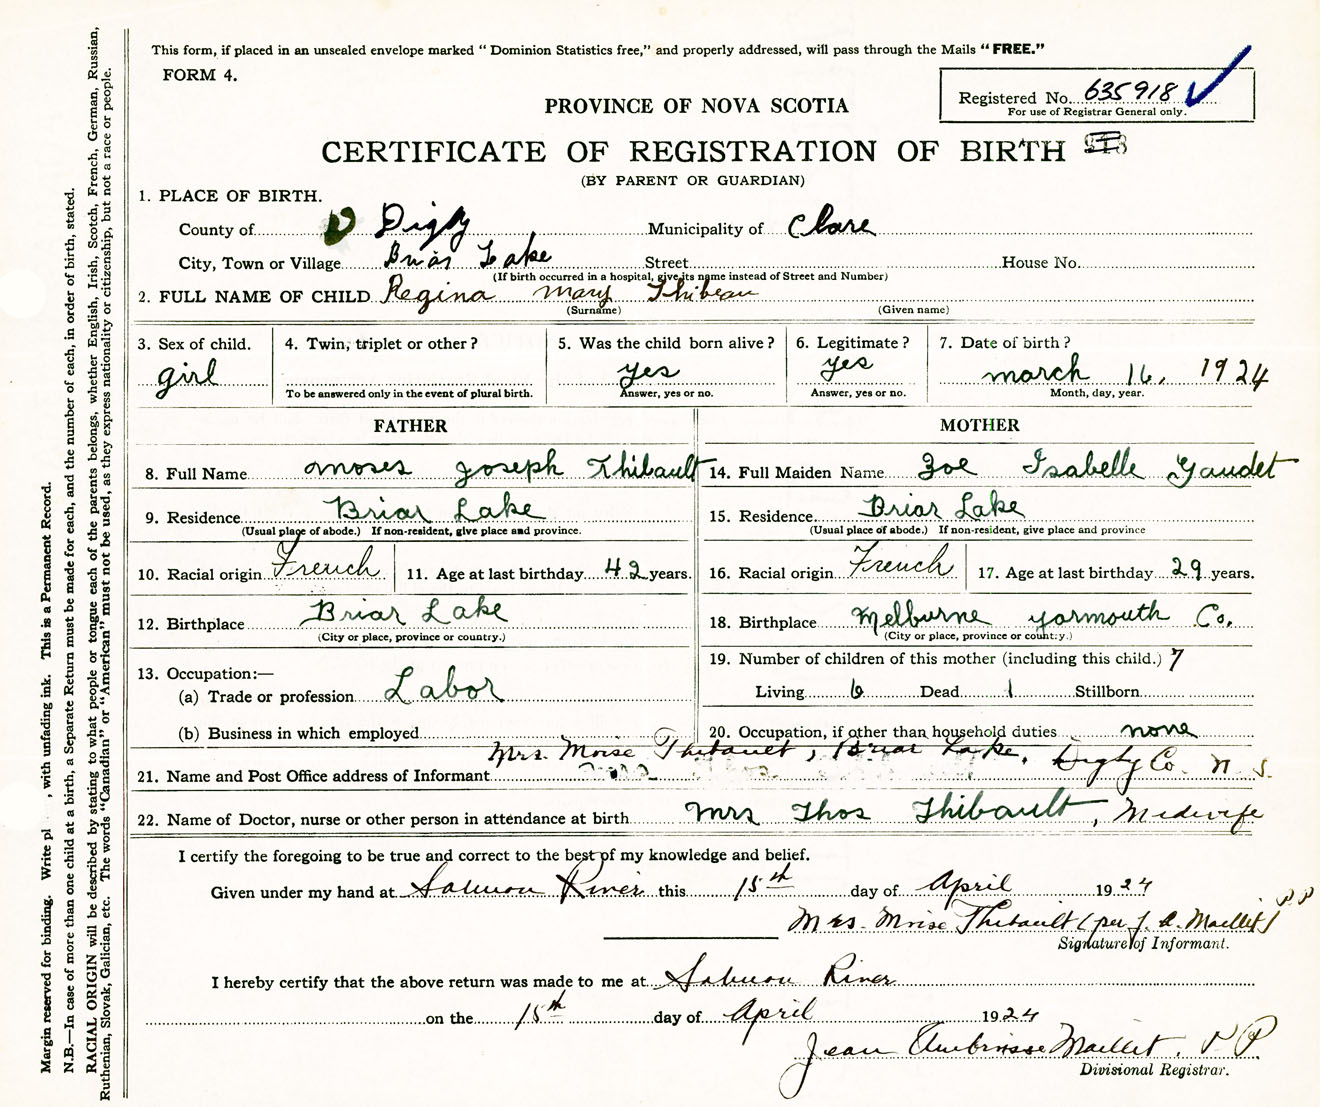 This form, if placed in an unsealed envelope marked “ Dominion Statistics free,” and properly addressed, will pass through the Mails “ FREE.”
FORM 4.
Registered No. 635918
For use of Registrar General only.
PROVINCE OF NOVA SCOTIA
CERTIFICATE OF REGISTRATION OF BIRTH
(BY PARENT OR GUARDIAN)
1. PLACE OF BIRTH.
County of Digby Municipality of Clare
City, Town or Village Briar Lake Street House No.
(If birth occurred in a hospital, give its name instead of Street and Number)
2. FULL NAME OF CHILD Regina Mary Thibeau
(Surname) (Given name)
3. Sex of child. 4. Twin, triplet or other? 5. Was the child born alive? 6. Legitimate? 7. Date of birth?
girl yes yes march 16, 1924
To be answered only in the event of plural birth. Answer, yes or no. Answer, yes or no. Month, day, year.
FATHER
8. Full Name Moses Joseph Thibault
9. Residence Briar Lake
(Usual place of abode.) If non-resident, give place and province.
10. Racial origin French 11. Age at last birthday 42 years.
12. Birthplace Briar Lake
(City or place, province or country.)
13. Occupation:—
(a) Trade or profession Labor
(b) Business in which employed
MOTHER
14. Full Maiden Name Zoe Isabelle Gaudet
15. Residence Briar Lake
(Usual place of abode.) If non-resident, give place and province
16. Racial origin French 17. Age at last birthday 29 years.
18. Birthplace Melburne yarmouth Co.
(City or place, province or country.)
19. Number of children of this mother (including this child.) 7
Living 6 Dead 1 Stillborn
20. Occupation, if other than household duties none
Mrs. Moise Thibault, Briar Lake, Digby Co. N. S.
21. Name and Post Office address of Informant
22. Name of Doctor, nurse or other person in attendance at birth Mrs Thos Thibault, Midwife
I certify the foregoing to be true and correct to the best of my knowledge and belief.
Given under my hand at Salmon River this 15th day of April 1924
Mrs. Moise Thibault (per J. A. Maillet)
Signature of Informant.
I hereby certify that the above return was made to me at Salmon River
on the 15th day of April 1924
Jean Ambroise Maillet,
Divisional Registrar.
Margin reserved for binding. Write pl , with unfading ink. This is a Permanent Record.
N.B.—In case of more than one child at a birth, a Separate Return must be made for each, and the number of each, in order of birth, stated.
RACIAL ORIGIN will be described by stating to what people or tongue each of the parents belongs, whether English, Irish, Scotch, French, German, Russian,
Ruthenian, Slovak, Galician, etc. The words “Canadian” or “American” must not be used, as they express nationality or citizenship, but not a race or people.